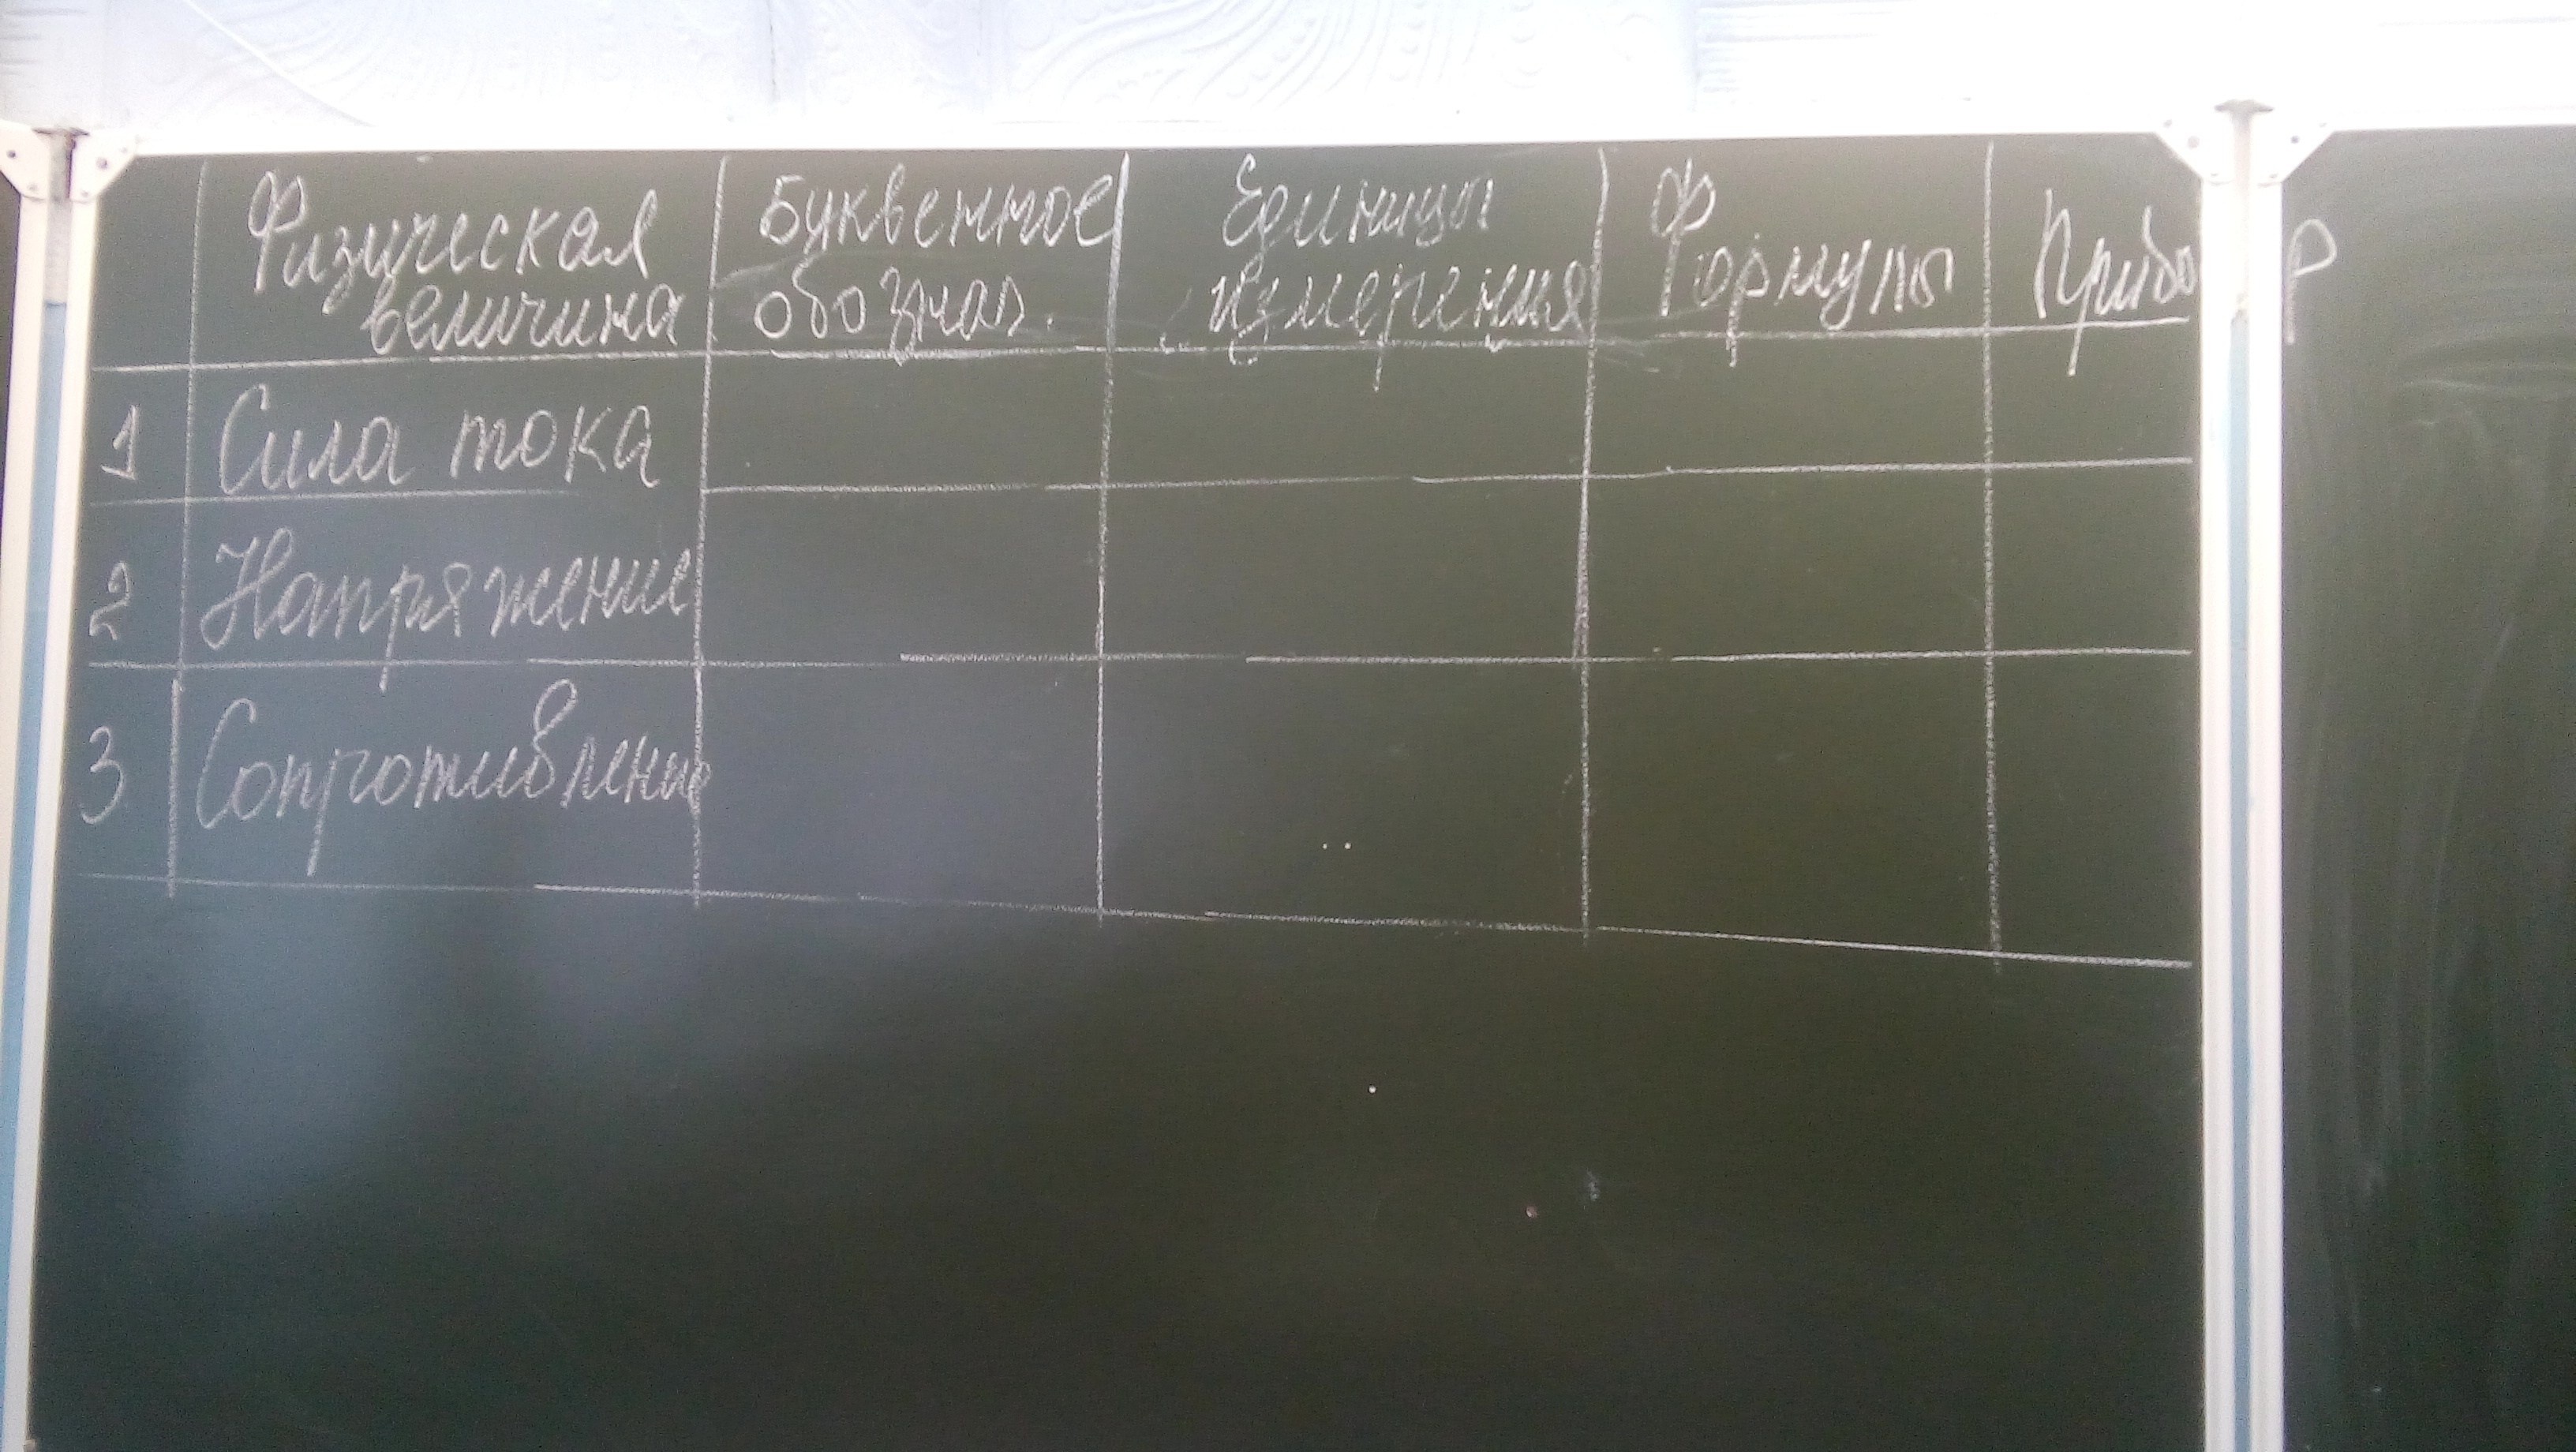 Физическая величина
Буквенное обознач.
Единицы измерения
Формулы
Прибор
1 Сила тока
2 Напряжение
3 Сопротивление